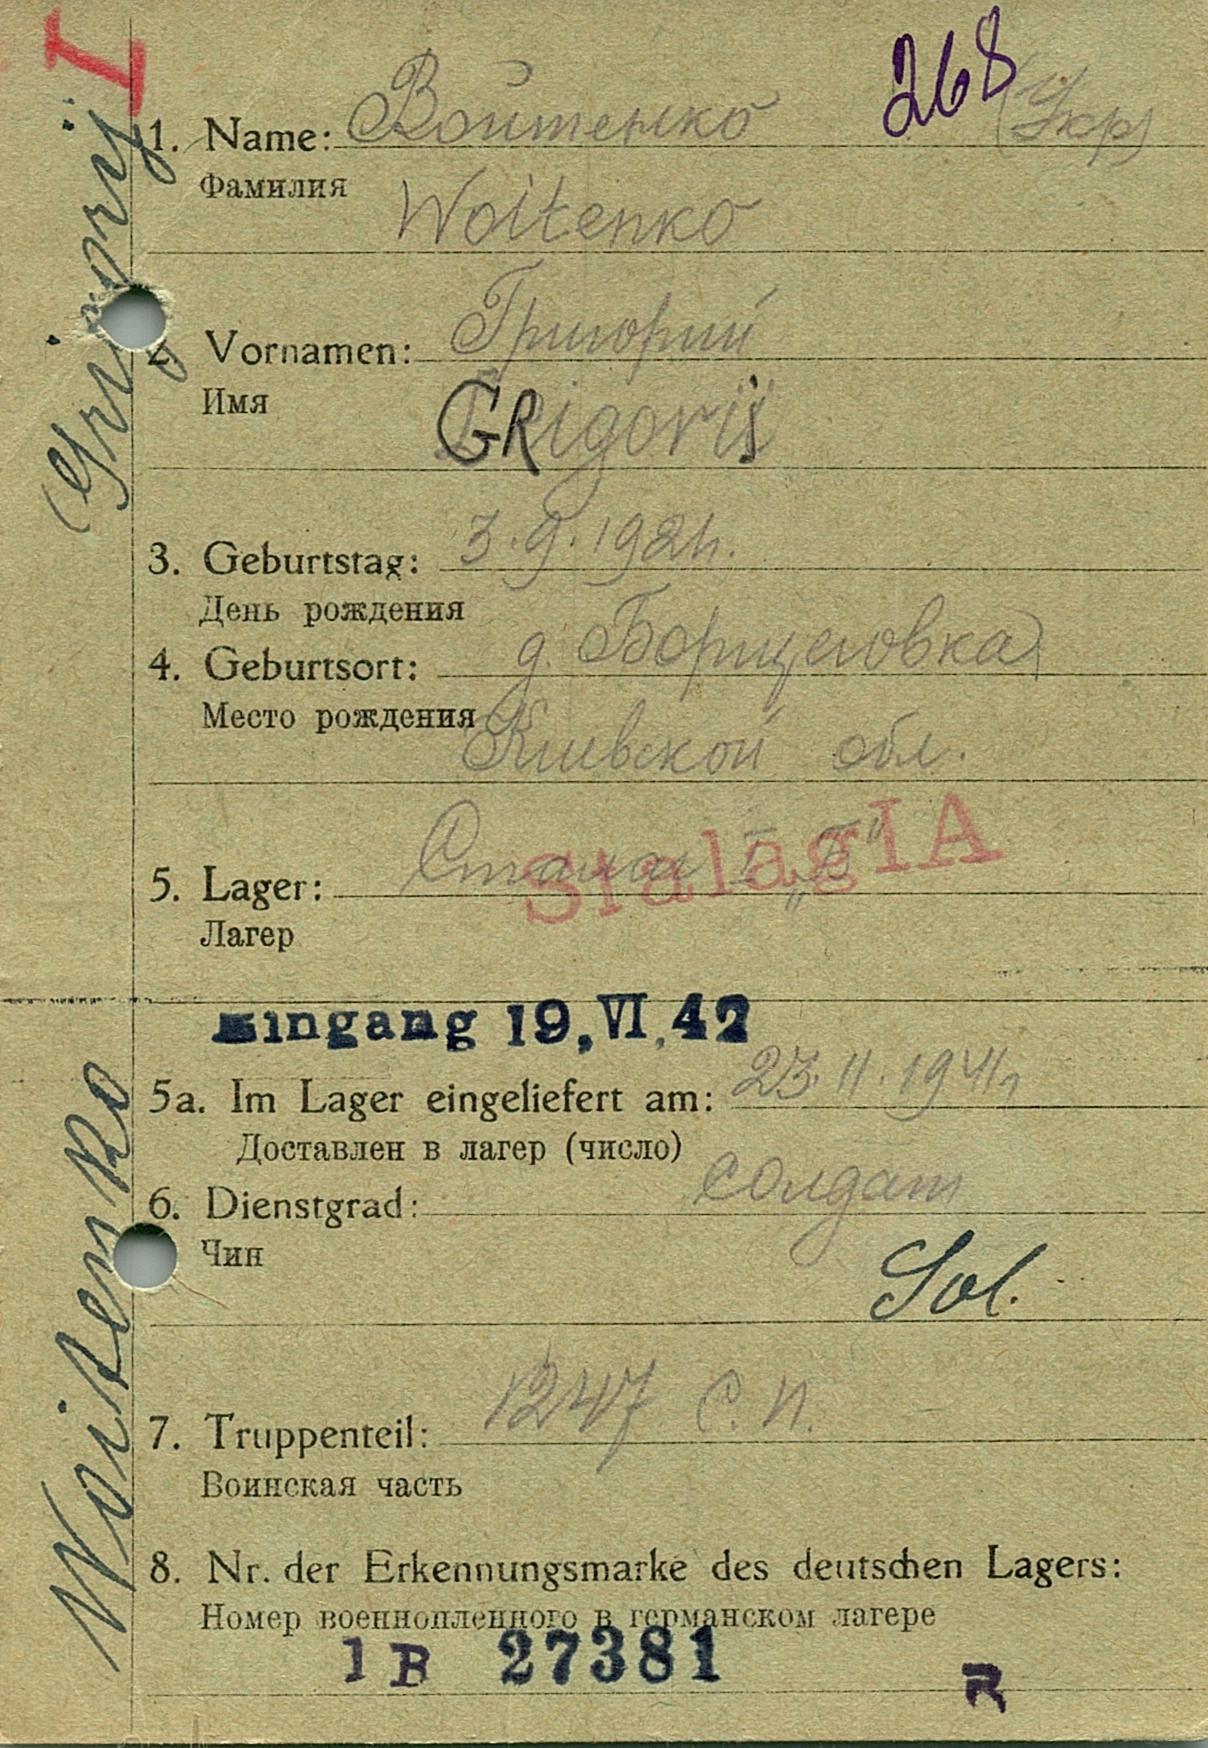 I
268
1. Name: Войтенко (Укр)
Фамилия
Woitenko
2. Vornamen: Григорий
Имя
GRigorij
3. Geburtstag: 3.9.1921г.
День рождения
4. Geburtsort: д. Борщеговка
Место рождения Киевской обл.
5. Lager: Сталаг I „Б“
Stalag IA
Лагер
Eingang 19. VI. 42
5a. Im Lager eingeliefert am: 23.11.1941г
Доставлен в лагер (число)
6. Dienstgrad: солдат
Чин
Sol.
7. Truppenteil: 1247 с.п.
Воинская часть
8. Nr. der Erkennungsmarke des deutschen Lagers:
Номер военнопленного в германском лагере
I B 27381
R
Woitenko Grigorij